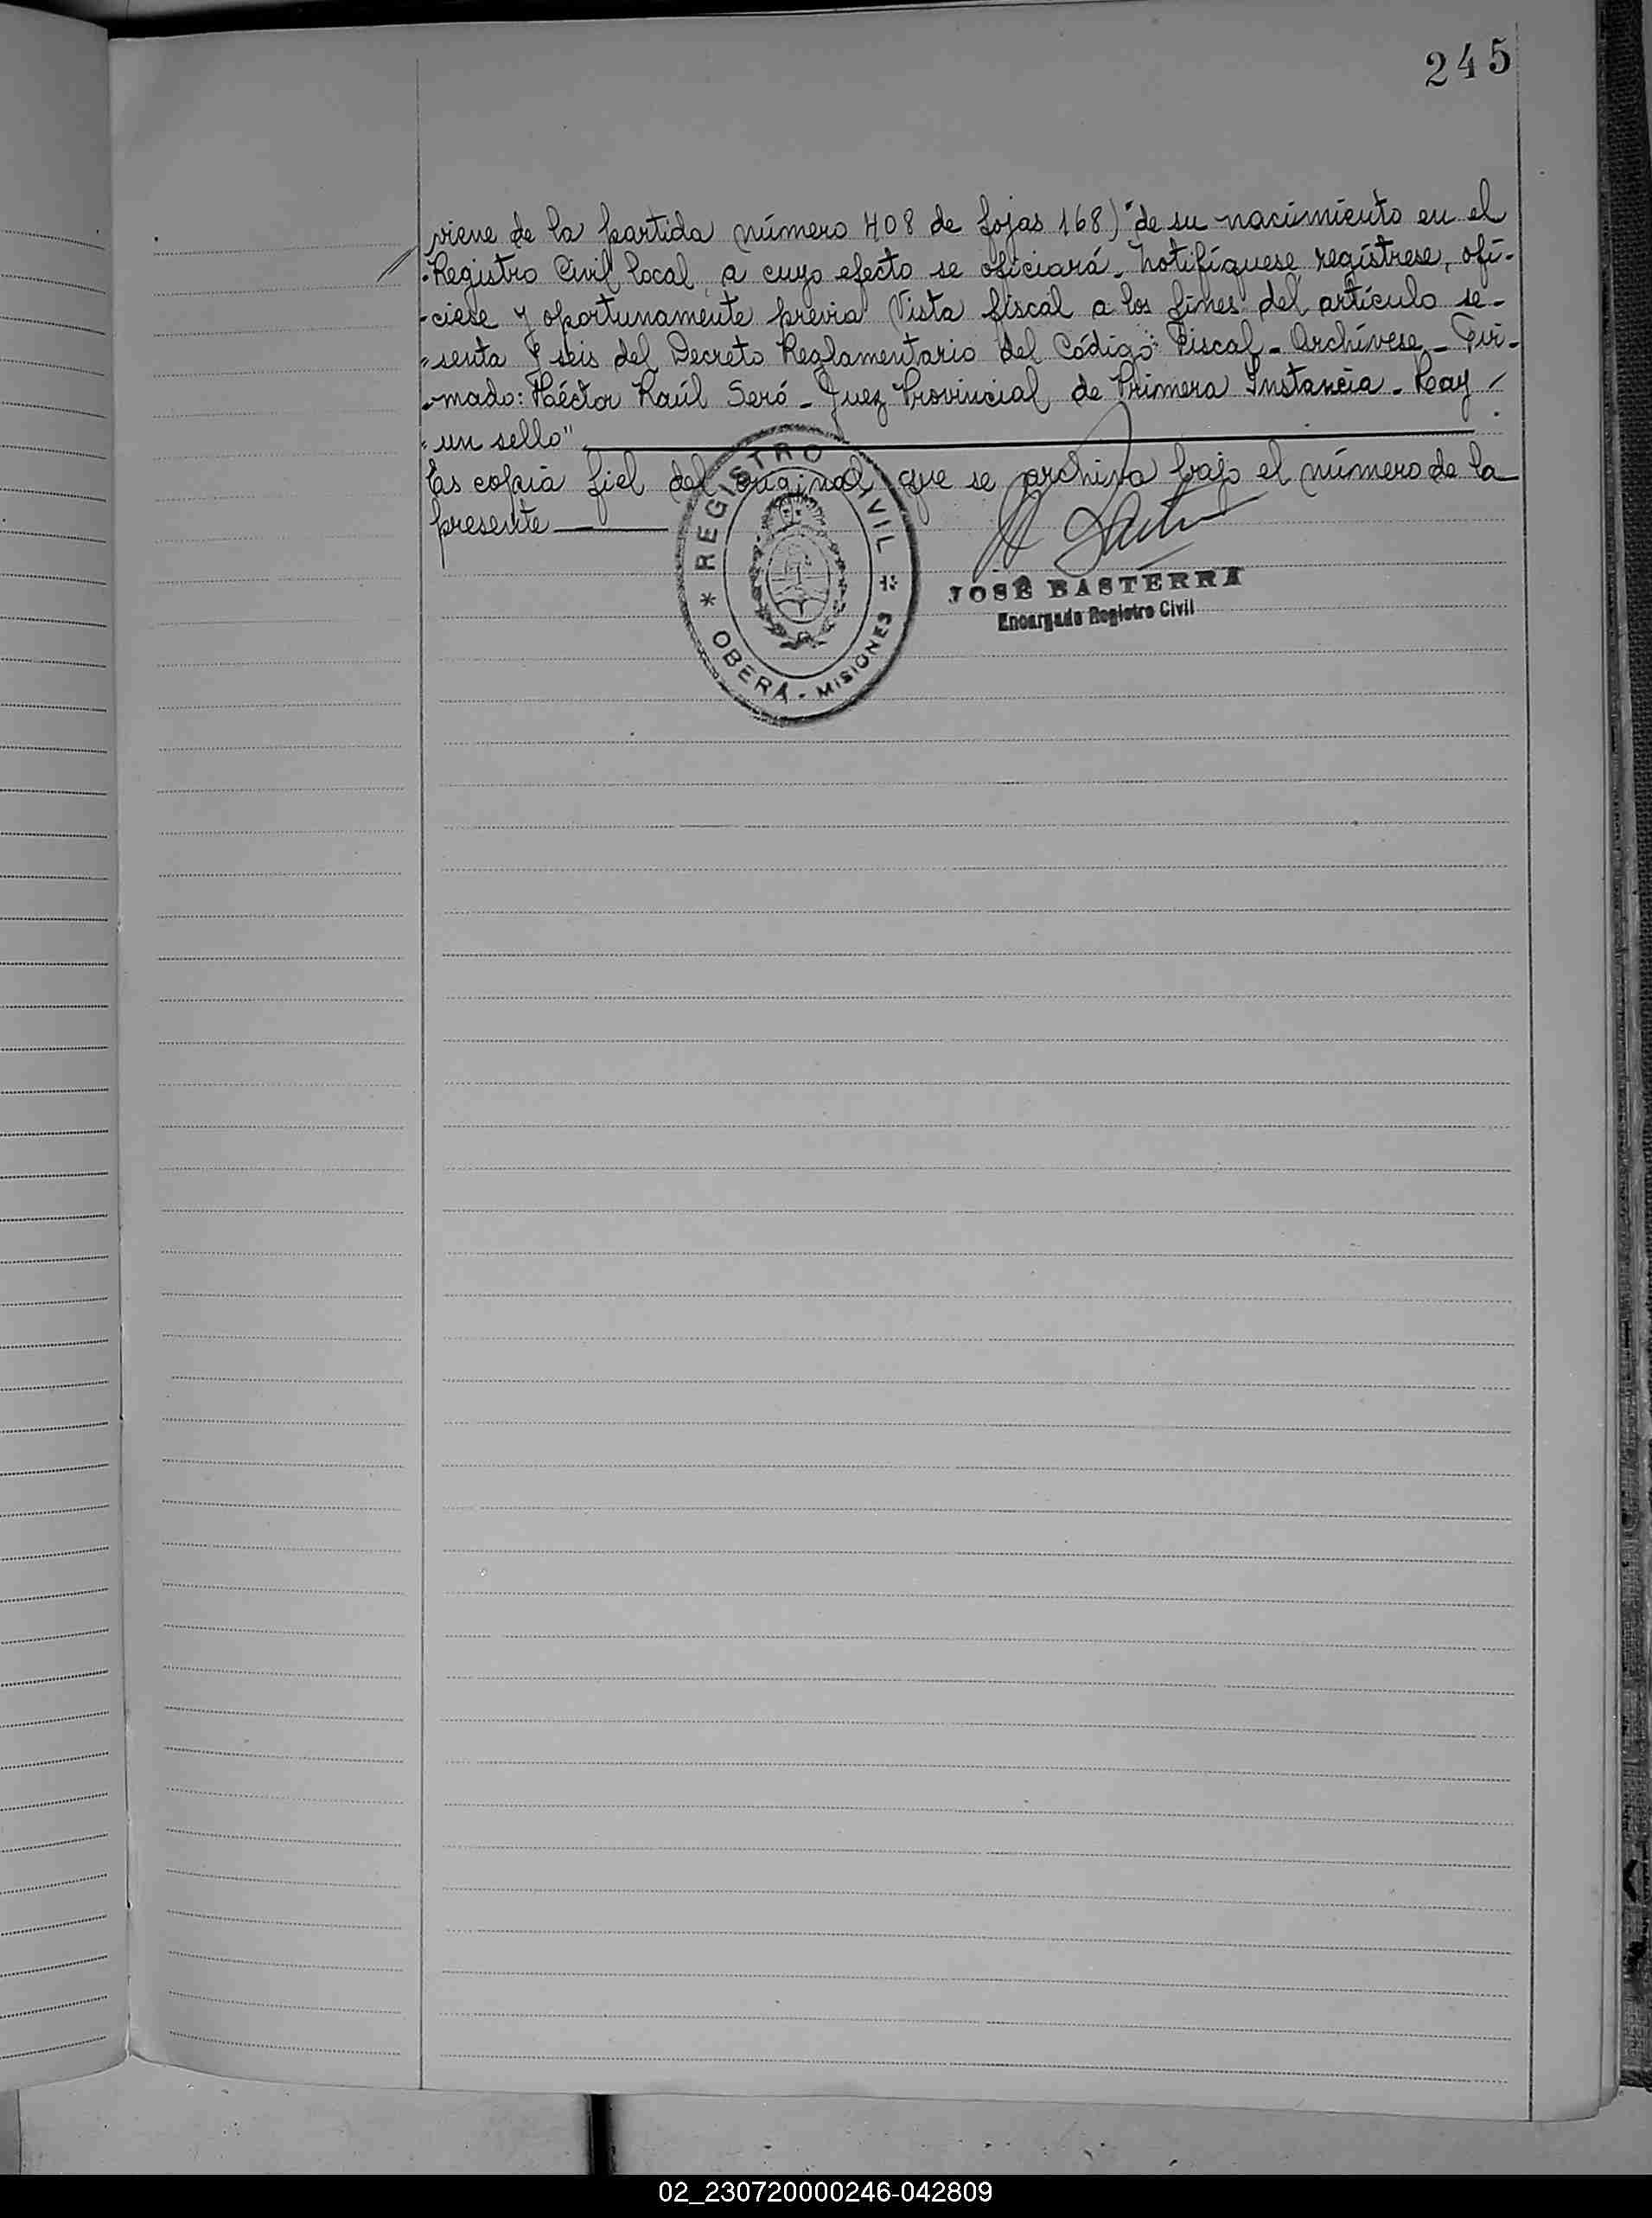 245
viene de la partida número 408 de fojas 168) "de su nacimiento en el
"Registro Civil local, a cuyo efecto se oficiará. Notifíquese, regístrese, ofí-
"ciese y oportunamente previa Vista fiscal a los fines del artículo se-
"senta y seis del Decreto Reglamentario del Código Fiscal - Archívese - Fir-
"mado: Héctor Raúl Seró - Juez Provincial de Primera Instancia - Hay
"un sello"
Es copia fiel del original que se archiva bajo el número de la
presente
REGISTRO CIVIL
* OBERÁ - MISIONES *
JOSÉ BASTERRA
Encargado Registro Civil
02_230720000246-042809